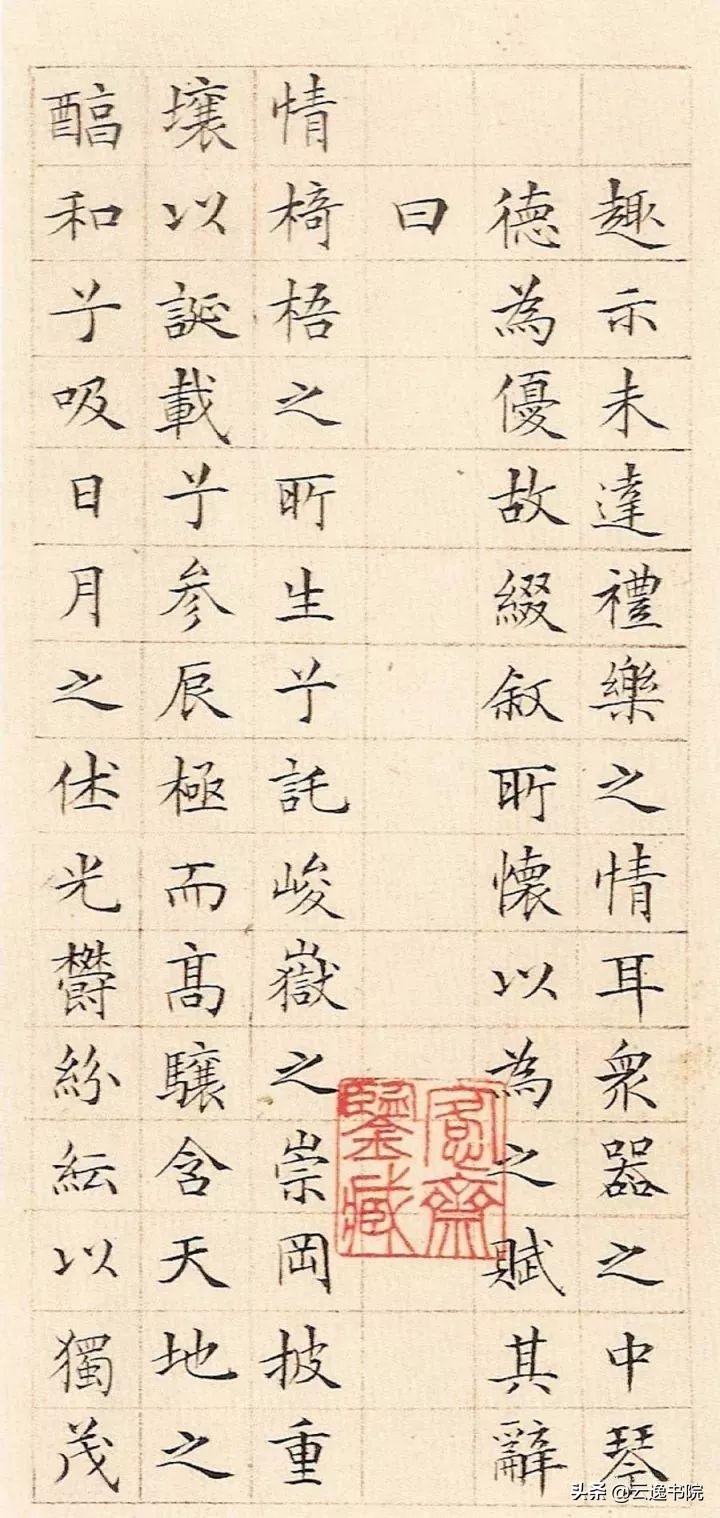 趣示未達禮樂之情耳衆器之中琴
德為優故綴叙所懷以為之賦其辭
曰
情椅梧之所生兮託峻嶽之崇岡披重
壤以誕載兮參辰極而髙驤含天地之
醕和兮吸日月之休光鬱紛紜以獨茂
愙齋
鑒藏
头条 @云逸书院